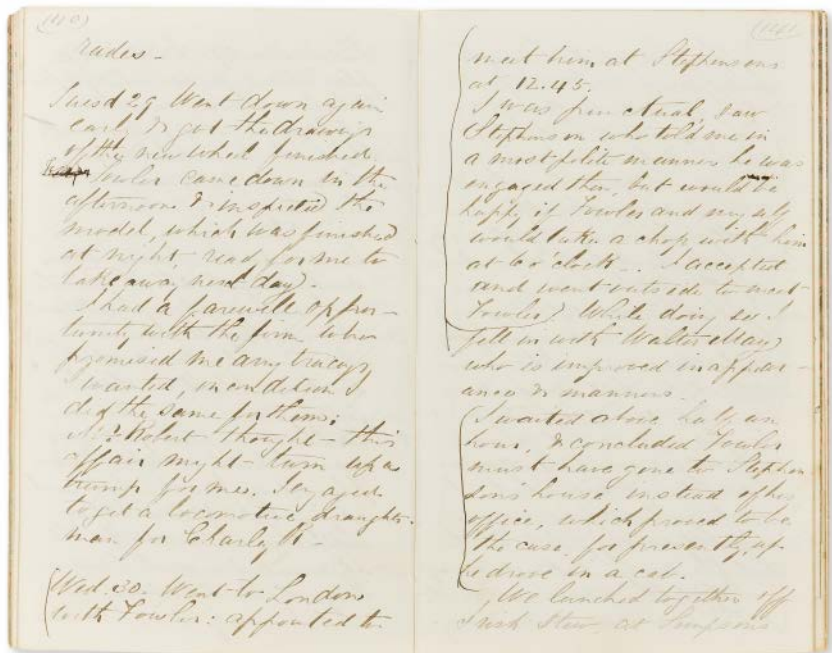 (140)
rades -
Tuesd 29 Went down again
early & got the drawings
of the new wheel finished
Fowler came down in the
afternoon & inspected the
model, which was finished
at night ready for me to
take away next day).
I had a farewell oppor-
tunity with the firm who
promised me any tracings
I wanted, on condition I
did the same for them;
Mr. Robert thought this
affair might turn up a
trump for me. I engaged
to get a locomotive draughts-
man for Charley K -
(Wed. 30. Went to London
with Fowler: appointed to
(141)
meet him at Stephensons
at 12.45.
I was punctual, saw
Stephenson who told me in
a most polite manner he was
engaged then, but would be
happy if Fowler and myself
would take a chop with him
at 6 o'clock -. I accepted
and went outside to meet
Fowler) While doing so I
fell in with Walter May
who is improved in appear-
ance & manners.
(I waited above half an
hour, & concluded Fowler
must have gone to Stephen
son's house instead of his
office, which proved to be
the case, for presently, up
he drove in a cab.
We lunched together off
Irish Stew, at Simpsons